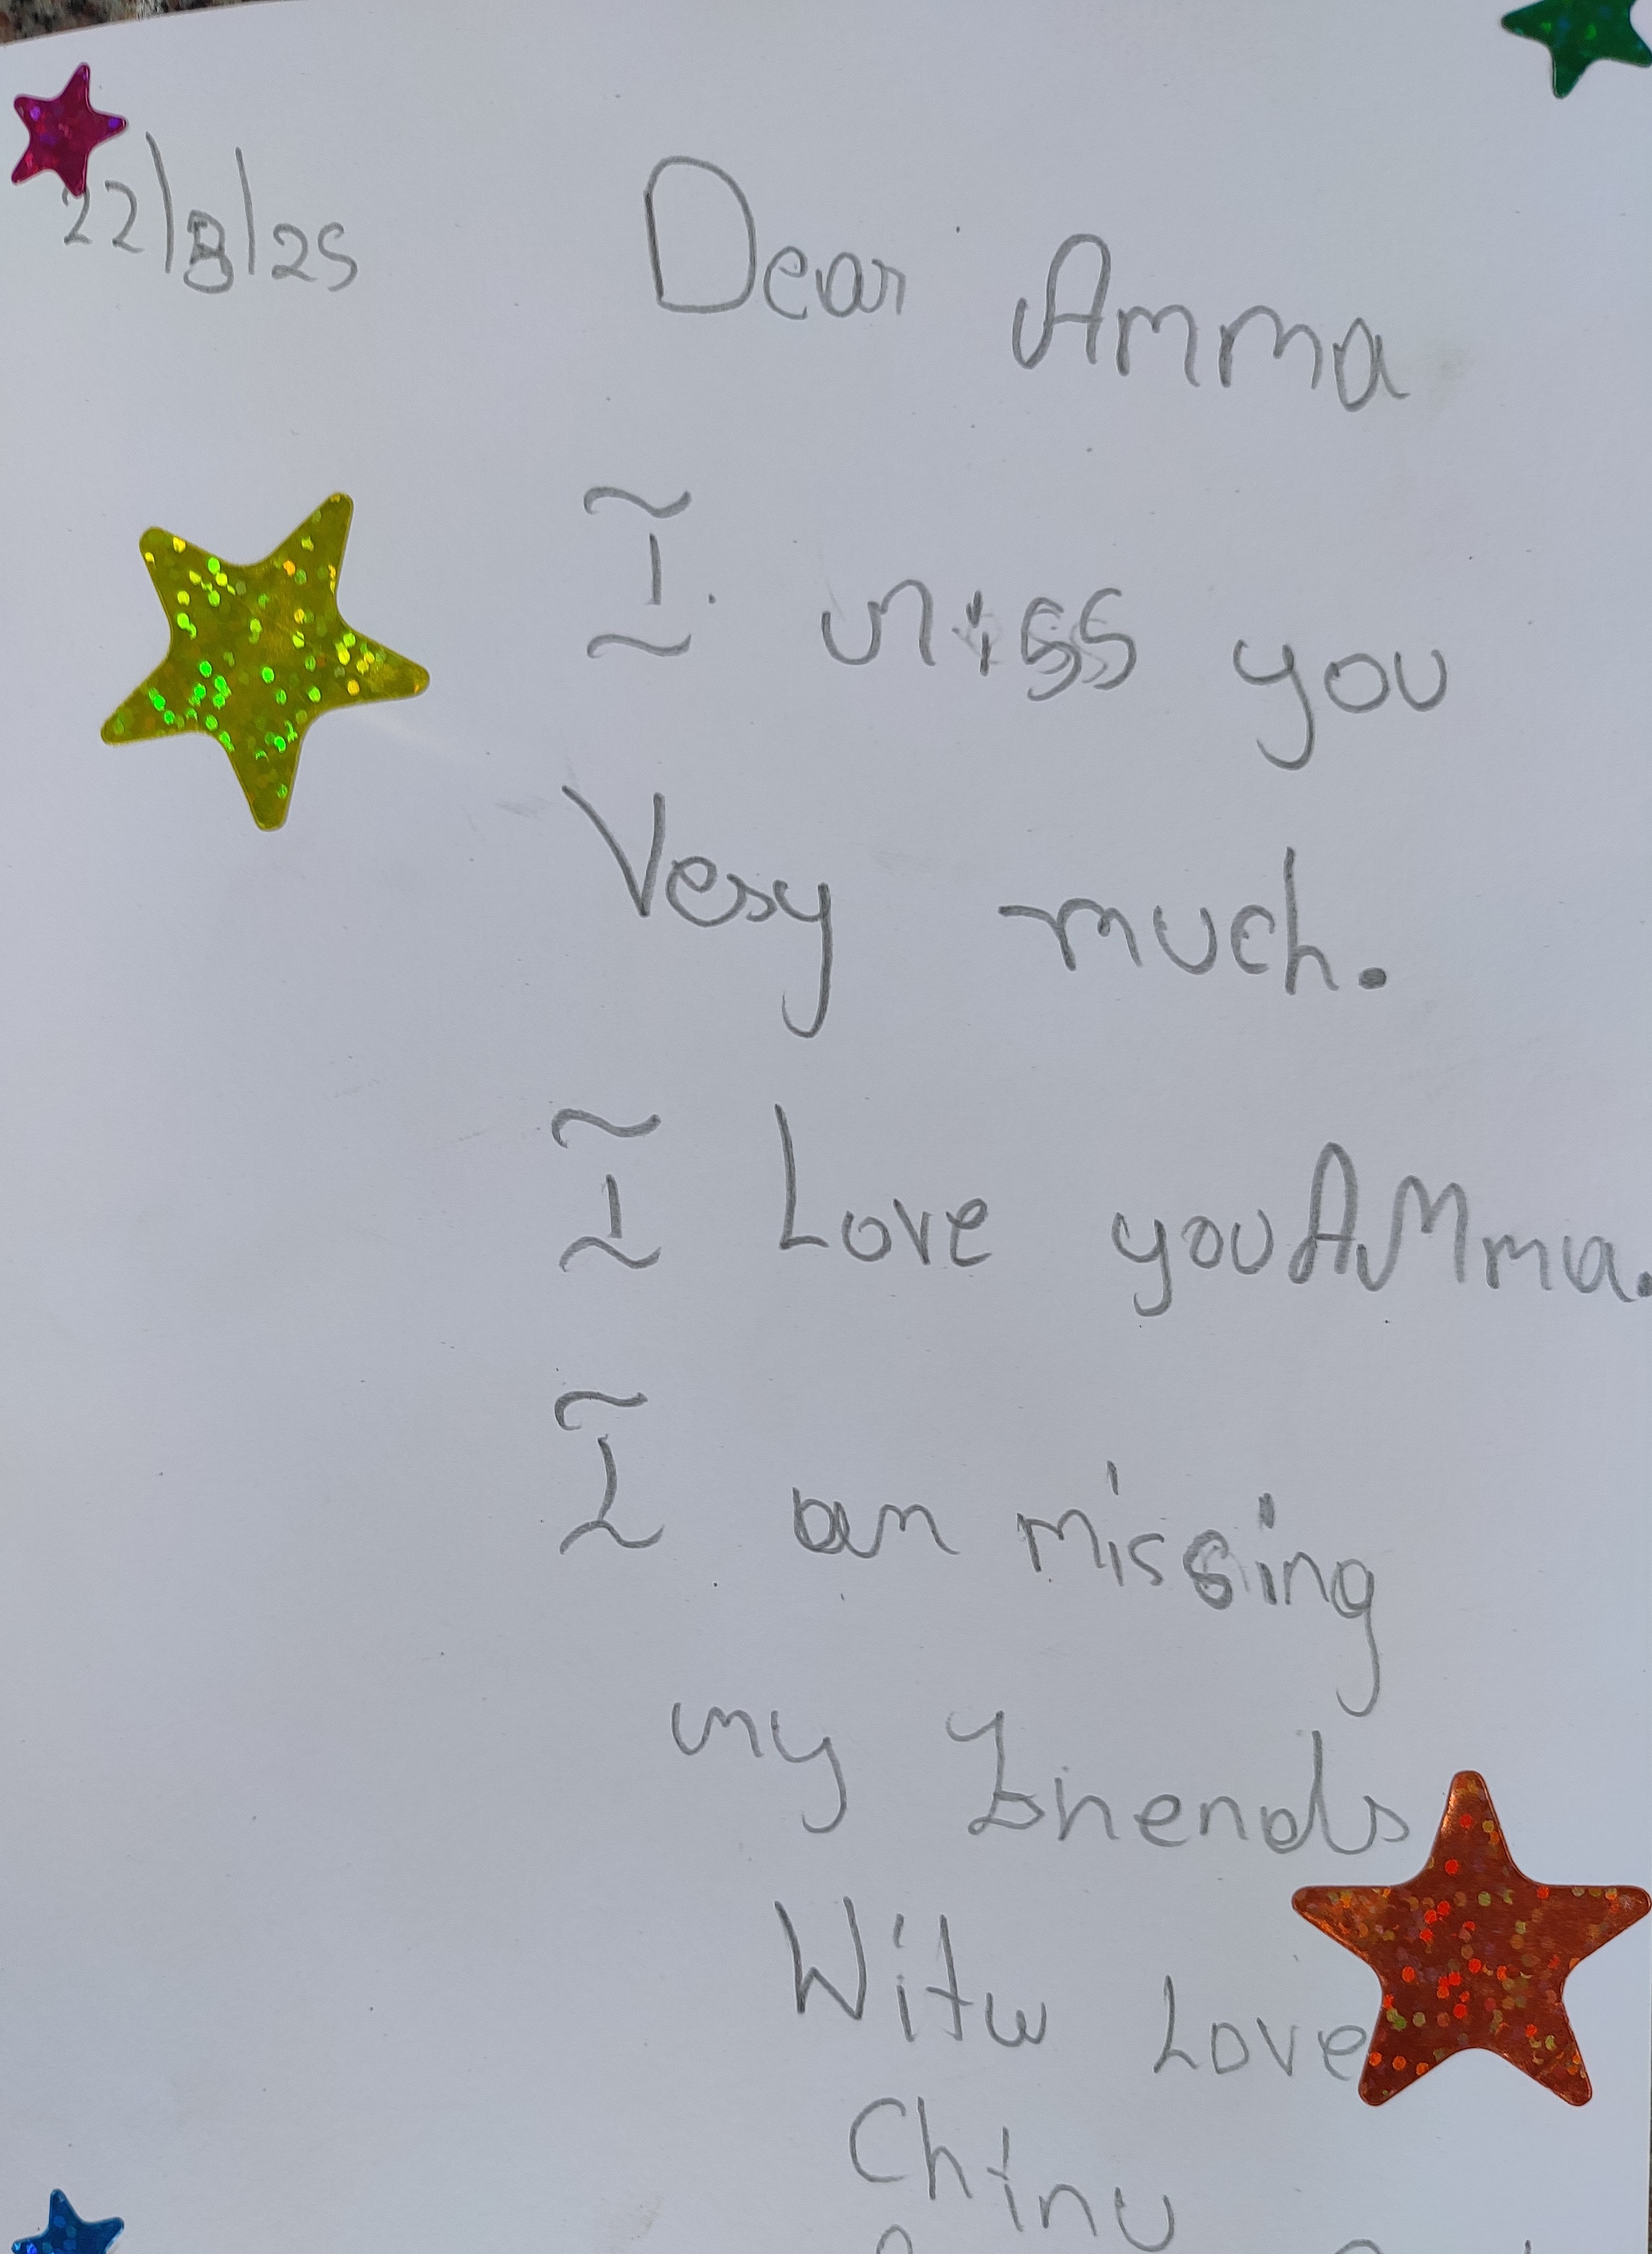 22/8/25
Dear Amma
I miss you
Very much.
I Love you AMma.
I am missing
my friends
Witw Love
Chinu